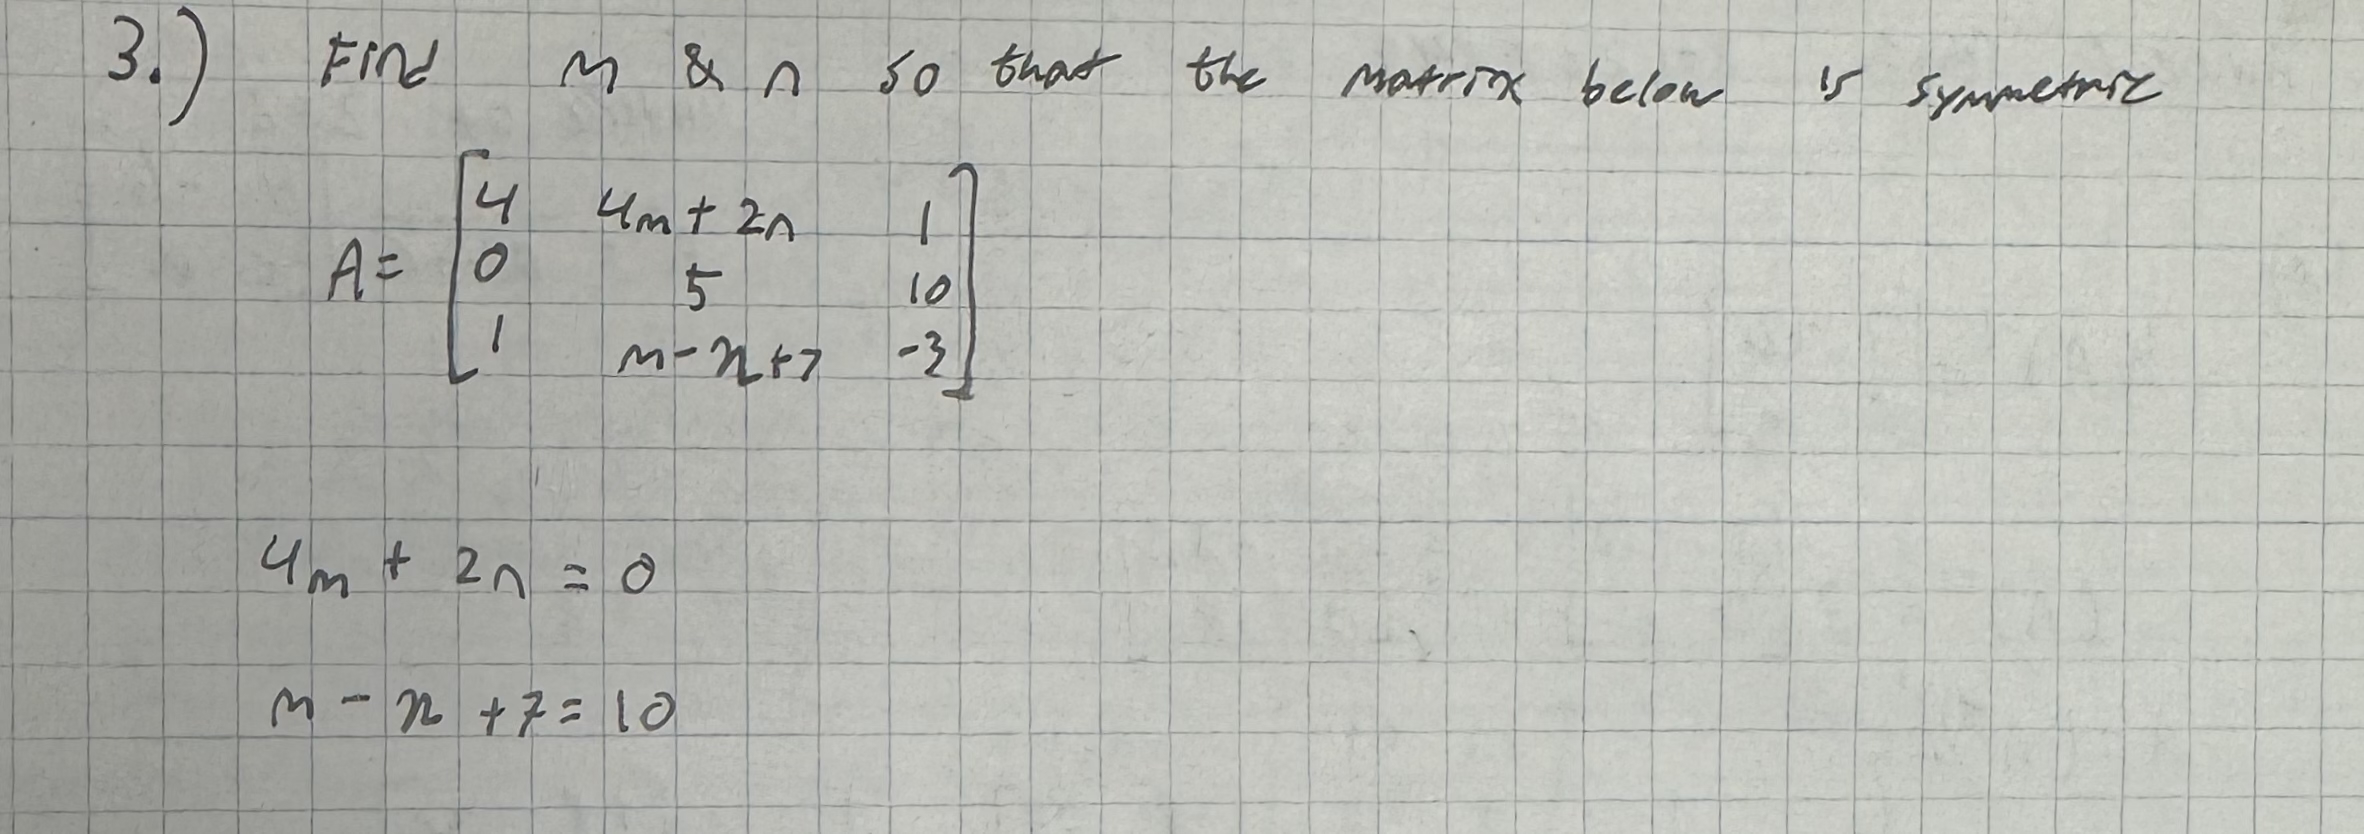 3.) Find m & n so that the matrix below is symmetric
A= [4 4m+2n 1
0 5 10
1 m-n+7 -3]
4m + 2n = 0
m - n +7=10